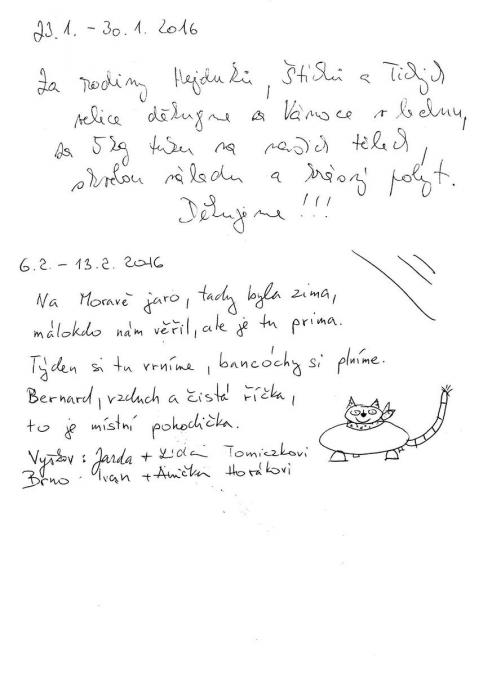 23.1. – 30.1. 2016
Za rodiny Hejduků, Štichů a Tichých
velice děkujeme za Vánoce v lednu,
za 5 kg tuku na našich tělech,
skvělou náladu a krásný pobyt.
Děkujeme !!!
6.2. – 13.2. 2016
Na Moravě jaro, tady byla zima,
málokdo nám věřil, ale je tu prima.
Týden si tu vrníme, bancóchy si plníme.
Bernard, vzduch a čistá říčka,
to je místní pohodička.
Vyškov: Jarda + Lída Tomiczkovi
Brno: Ivan + Anička Horákovi